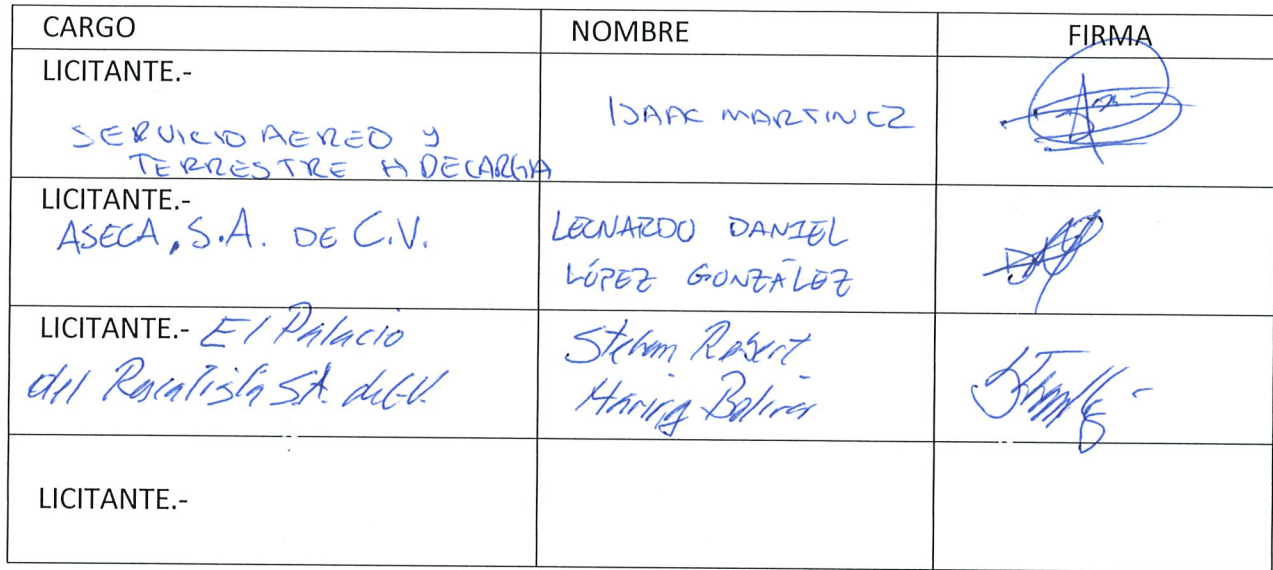 CARGO NOMBRE FIRMA
LICITANTE.-
SERVICIO AEREO Y
TERRESTRE H DECARGA
ISAAC MARTINEZ
LICITANTE.-
ASECA, S.A. DE C.V.
LEONARDO DANIEL
LÓPEZ GONZÁLEZ
LICITANTE.- El Palacio
del Rescatista S.A. de C.V.
Robert
Haring Bolivar
LICITANTE.-